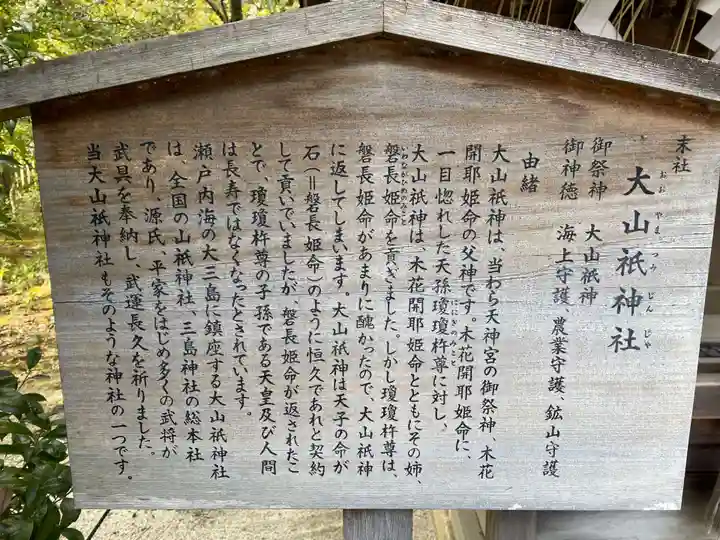 末社
大山祇神社
おおやまつみじんじゃ
御祭神 大山祇神
御神徳 海上守護、農業守護、鉱山守護
由緒
大山祇神は、当わら天神宮の御祭神、木花
開耶姫命の父神です。木花開耶姫命に、
一目惚れした天孫瓊瓊杵尊に対し、
ににぎのみこと
大山祇神は、木花開耶姫命とともにその姉、
磐長姫命を貢ぎました。しかし瓊瓊杵尊は、
いわながひめのみこと
磐長姫命があまりに醜かったので、大山祇神
に返してしまいます。大山祇神は天子の命が
石(=磐長姫命)のように恒久であれと契約
して貢いでいましたが 磐長姫命が返されたこ
とで、瓊瓊杵尊の子孫である天皇及び人間
は長寿ではなくなったとされています。
瀬戸内海の大三島に鎮座する大山祇神社
は、全国の山祇神社、三島神社の総本社
であり、源氏、平家をはじめ多くの武将が
武具を奉納し、武運長久を祈りました。
当大山祇神社もそのような神社の一つです。